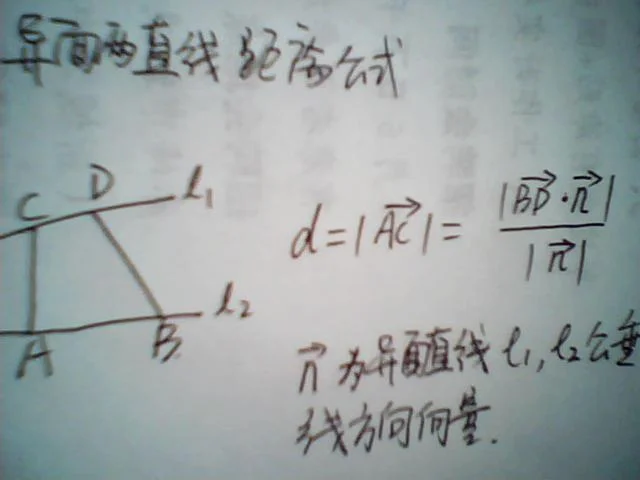 异面两直线距离公式
C D l₁
A B l₂
d=|\overrightarrow{AC}|=\frac{|\overrightarrow{BD}·\vec{n}|}{|\vec{n}|}
\vec{n}为异面直线l₁,l₂公垂
线方向向量.